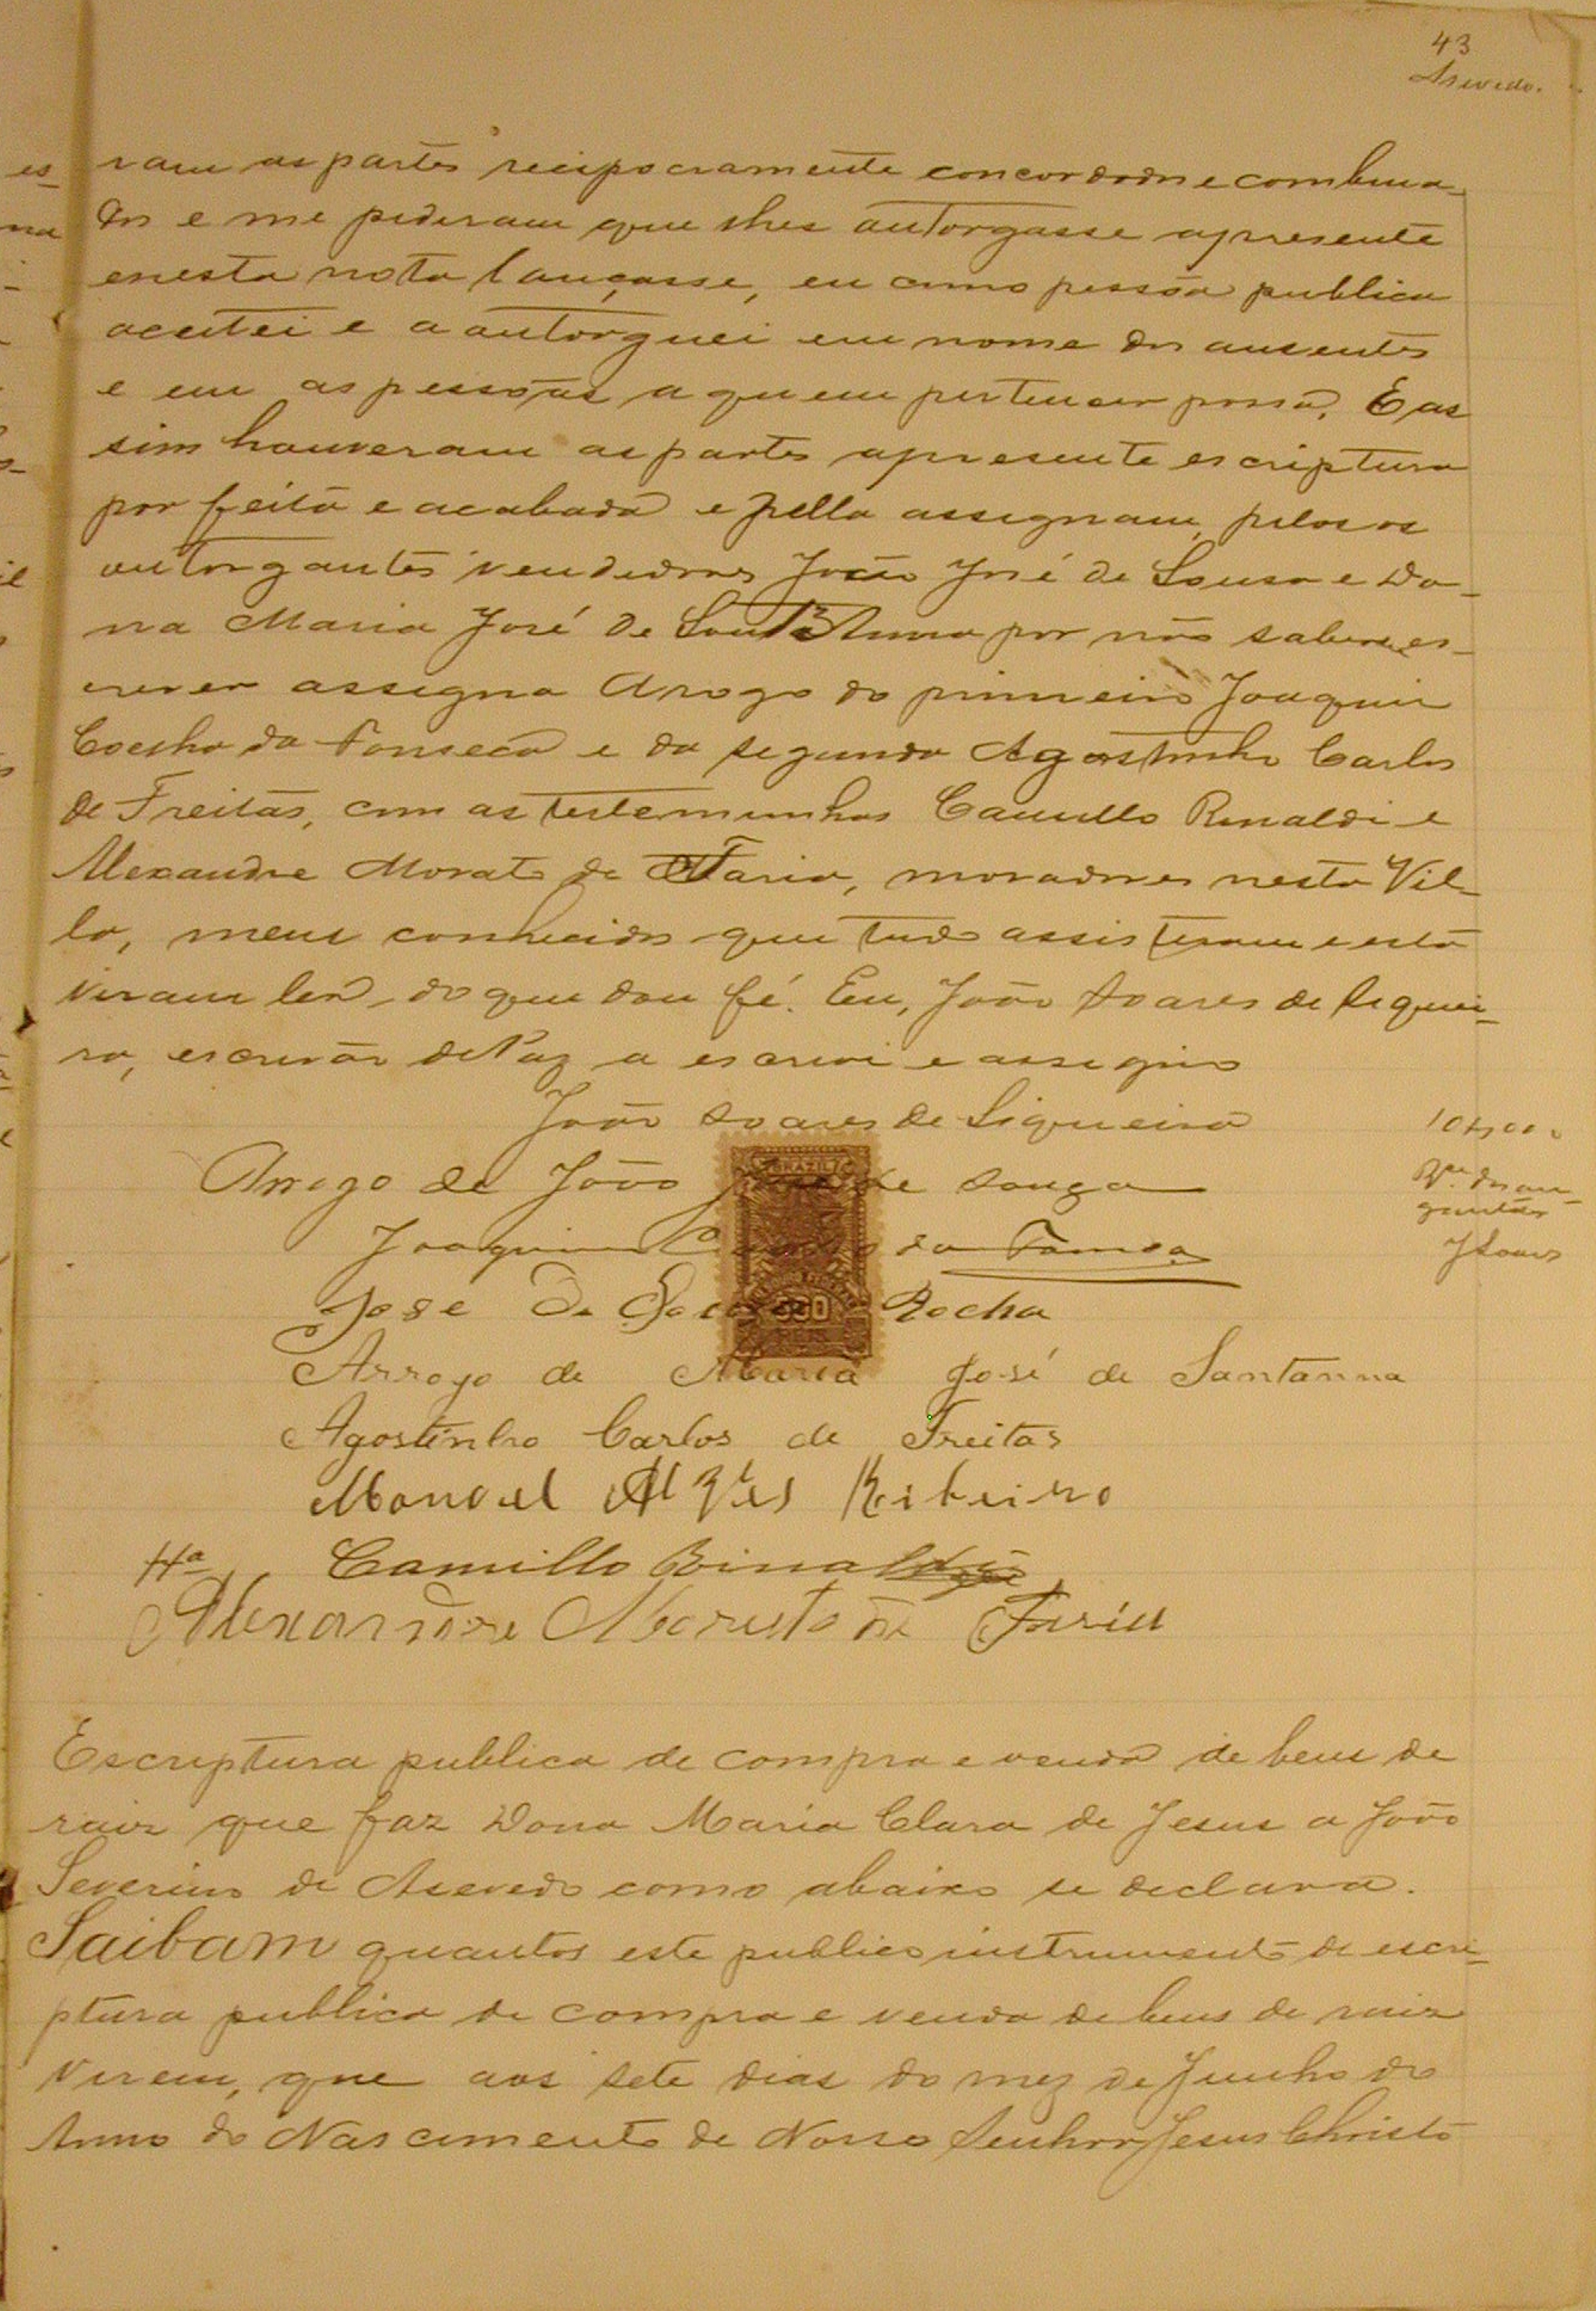 43
Asevedo.
ram as partes recipocramente concordado e combina-
do e me pediram que lhes autorgasse apresente
enesta nota lançasse, eu como pessôa publica
aceitei e a autorguei em nome dos ausentes
e em as pessôas a quem pertencer possa. E as
sim houveram as partes apresente escriptura
por feita e acabada e pella assignam, pelos os
outorgantes vendedores João José de Sousa e Do-
na Maria José de Anna por não saberes-
crever assigna Arogo do primeiro Joaquim
Coelho da Fonseca e da segunda Agostinho Carlos
de Freitas, com as testemunhas Camillo Renaldi e
Alexandre Morato de Faria, moradores nesta Vil-
la, meus conhecidos que tudo assisteram e esta
viram ler, do que dou fé. Eu, João Soares de Siquei-
ra, escrivão de Paz a escrevi e assigno
João Soares de Siqueira
10$000
Arrogo de João José de Souza
Joaquim da
JSoares
Jose De Rocha
Arrogo de Maria José de Santanna
Agostinho Carlos de Freitas
Manoel Alves Ribeiro
Camillo Rinaldi
Alexandre Morato de Faria
Escriptura publica de compra e venda de bens de
raiz que faz Dona Maria Clara de Jesus a João
Severino de Asevedo como abaixo se declara.
Saibam quantos este publico instrumento de escri-
ptura publica de compra e venda de bens de raiz
virem, que aos sete dias do mez de Junho do
Anno do Nascimento de Nosso Senhor Jesus Christo